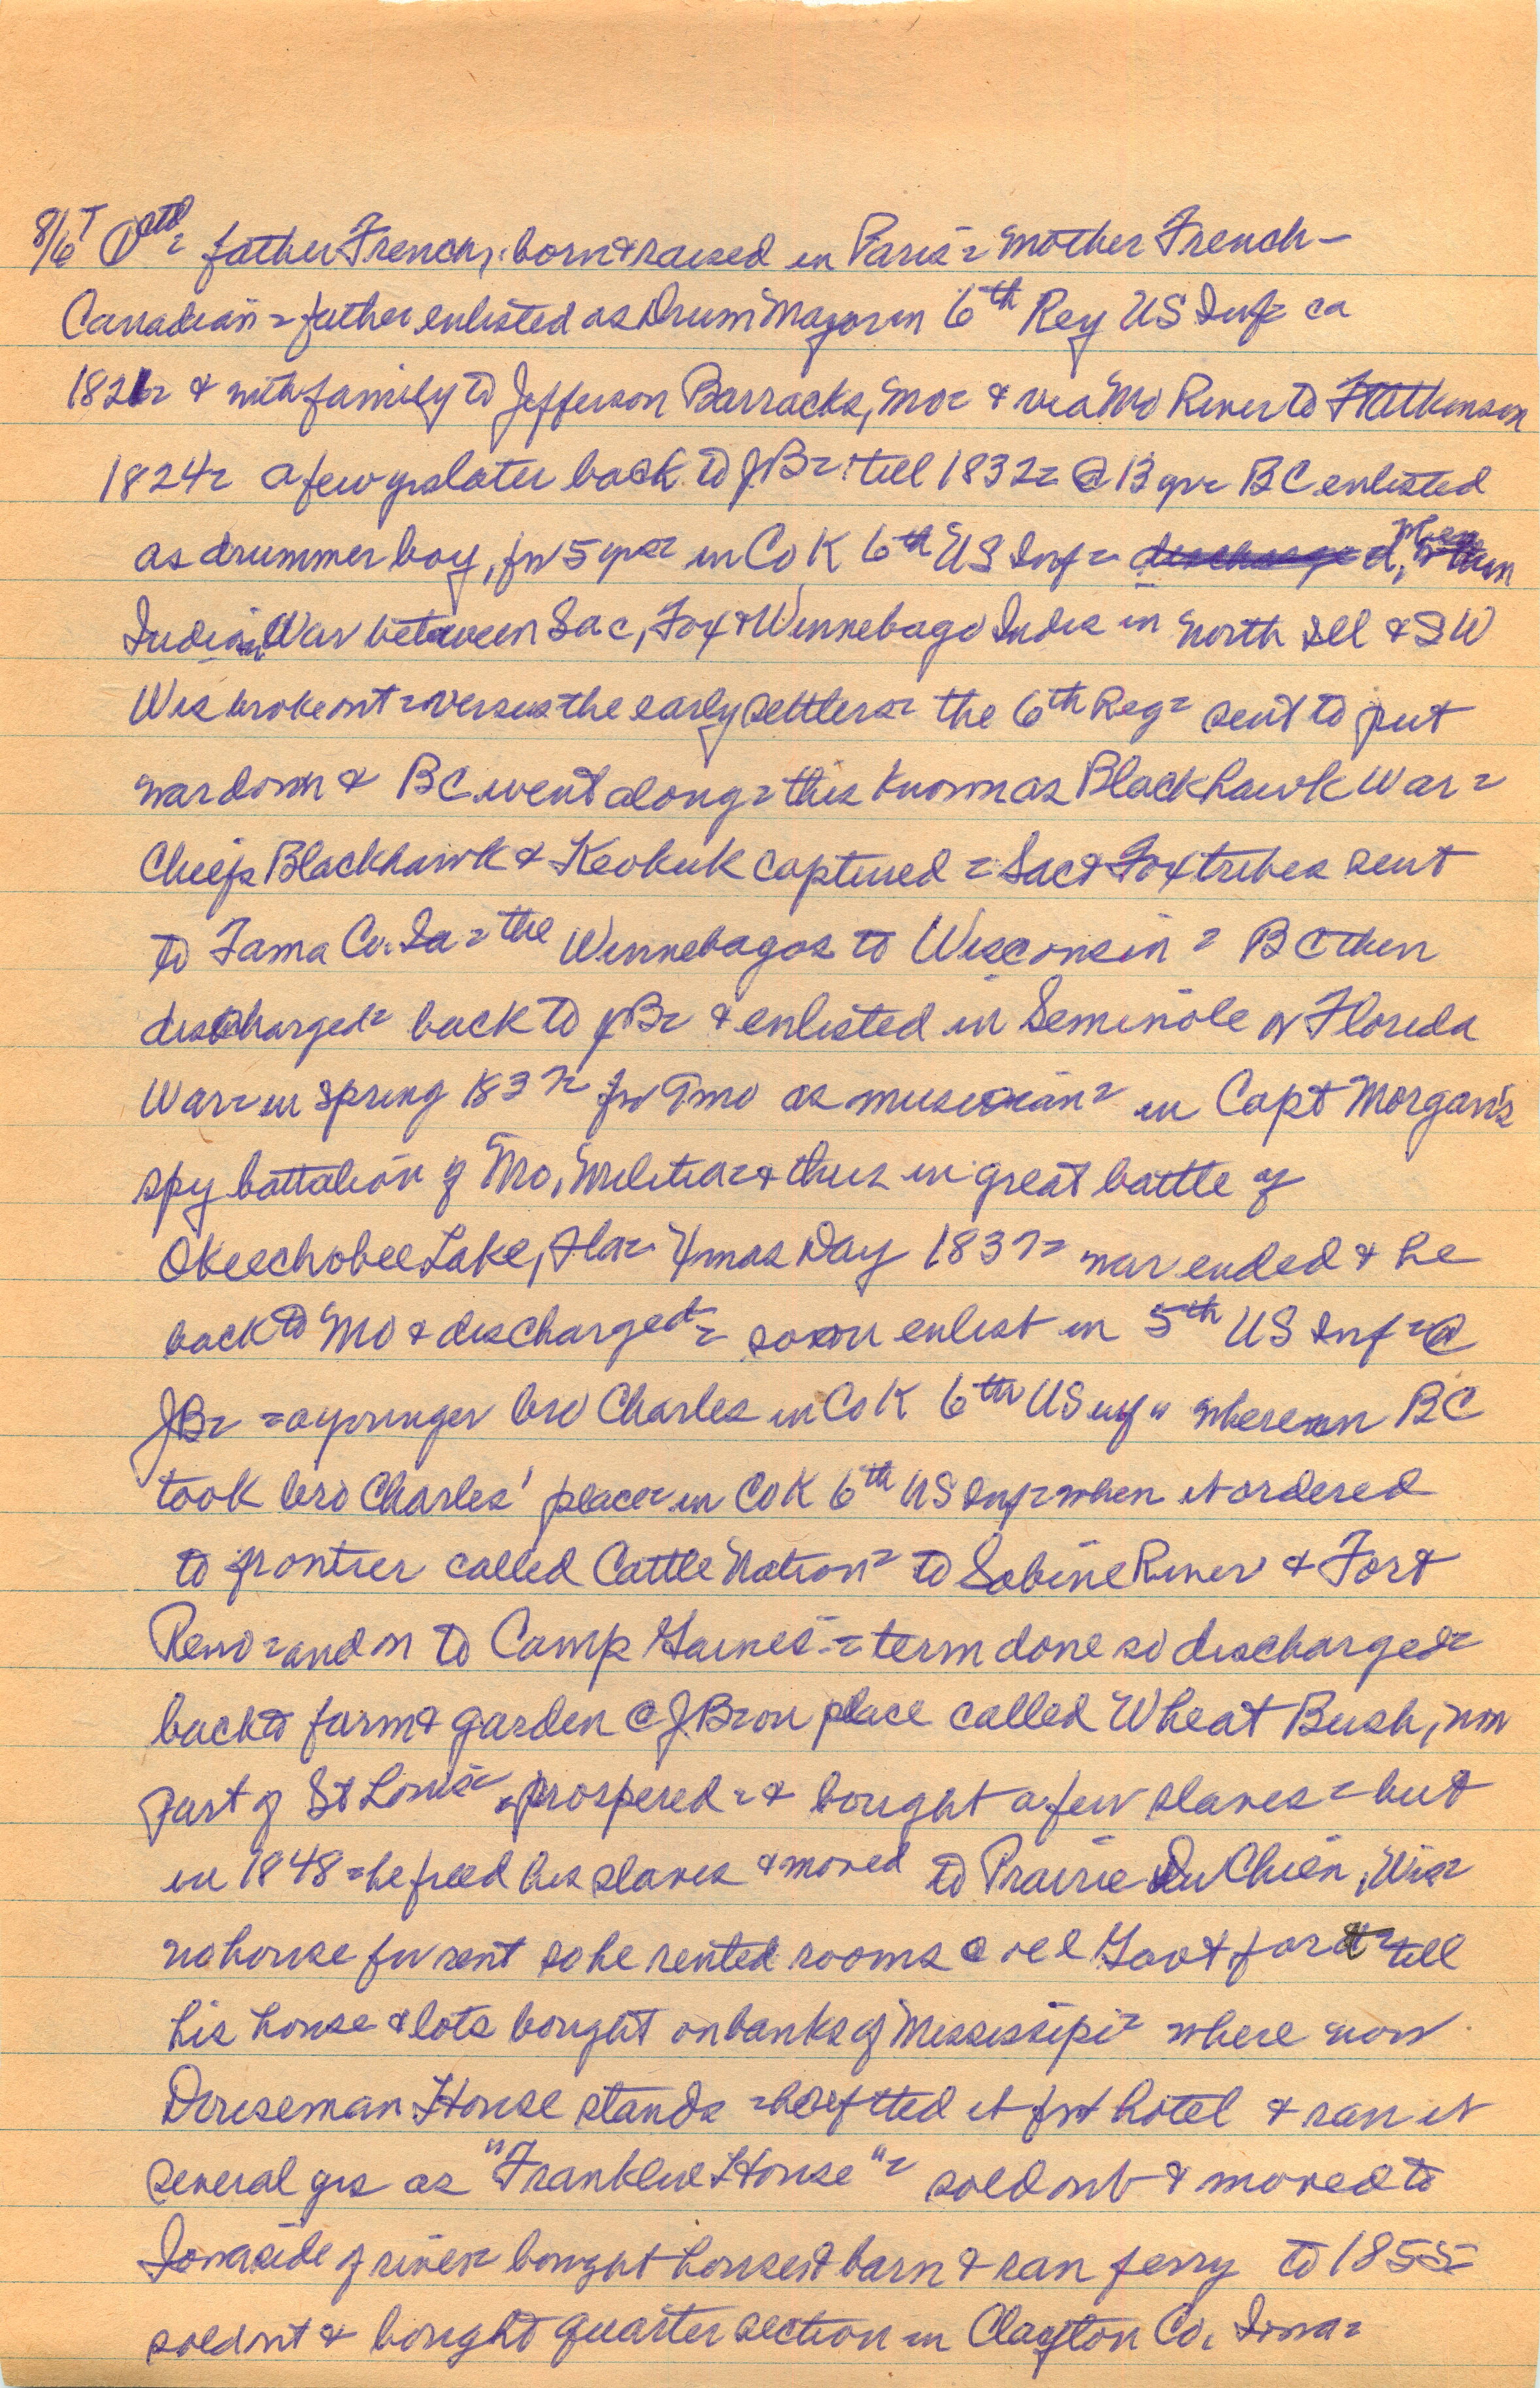 8/6 T father French, born & raised in Paris = mother French-
Canadian = father enlisted as Drum Major in 6th Reg US Inf = ca
1821 = & with family to Jefferson Barracks, Mo = & via Mo River to Ft Atkinson
1824 = a few yrs later back to JB = till 1832 = @ 13 yr = BC enlisted
as drummer boy, for 5 yrs = in Co K 6th US Inf = discharged, when
Indian War between Sac, Fox & Winnebago Inds in north Ill & SW
Wis broke out = versus the early settlers = the 6th Reg = sent to put
war down & BC went along = this known as Blackhawk War =
Chiefs Blackhawk & Keokuk captured = Sac & Fox tribes sent
to Tama Co. Ia = the Winnebagos to Wisconsin = BC then
discharged = back to JB = & enlisted in Seminole or Florida
War = in spring 1837 = for 9 mo as musician = in Capt Morgan's
spy battalion of Mo, Militia = & thus in great battle of
Okeechobee Lake, Fla = Xmas Day 1837 = war ended & he
back to Mo & discharged = soon enlist in 5th US Inf = @
JB = = a younger bro Charles in Co K 6th US inf = BC
took bro Charles' place = in Co K 6th US Inf = when it ordered
to frontier called Cattle Nation = to Sabine River & Fort
Reno = and on to Camp Gaines = = term done so discharged =
back to farm & garden @ JB = on place called Wheat Bush, now
part of St Louis = prospered = & bought a few slaves = but
in 1848 = he freed his slaves & moved to Prairie Du Chien, Wis =
no house for rent so he rented rooms @ old Govt fort = till
his house & lots bought on banks of Mississipi = where now
Douseman House stands = he fitted it for hotel & ran it
several yrs as "Franklin House" = sold out & moved to
Iowa side of river = bought house & barn & ran ferry to 1855 =
sold out & bought quarter section in Clayton Co. Iowa =